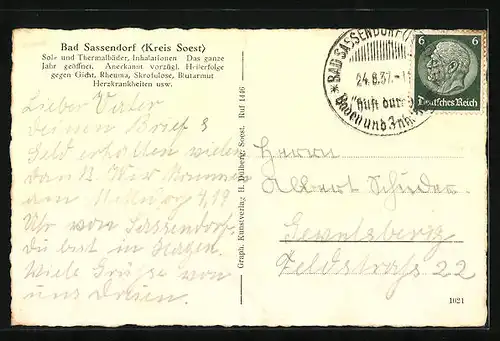 Bad Sassendorf (Kreis Soest)
Sole und Thermalbäder, Inhalationen Das ganze
Jahr geöffnet. Anerkannt vorzügl. Heilerfolge
gegen Gicht, Rheuma, Skrofulose, Blutarmut
Herzkrankheiten usw.
Lieber Vater
deinen Brief &
Geld erhalten vielen
Dank. Wir kommen
am 4,19
Uhr von Sassendorf.
du bist in Hagen.
Viele Grüsse von
uns Dreien.
Graph. Kunstverlag H. Dülberg, Soest. Ruf 1446
BAD SASSENDORF
24.8.37
hilft durch
Baden und
6 6
Deutsches Reich
Herrn
Albert
Gevelsberg
Feldstraße 22
1021